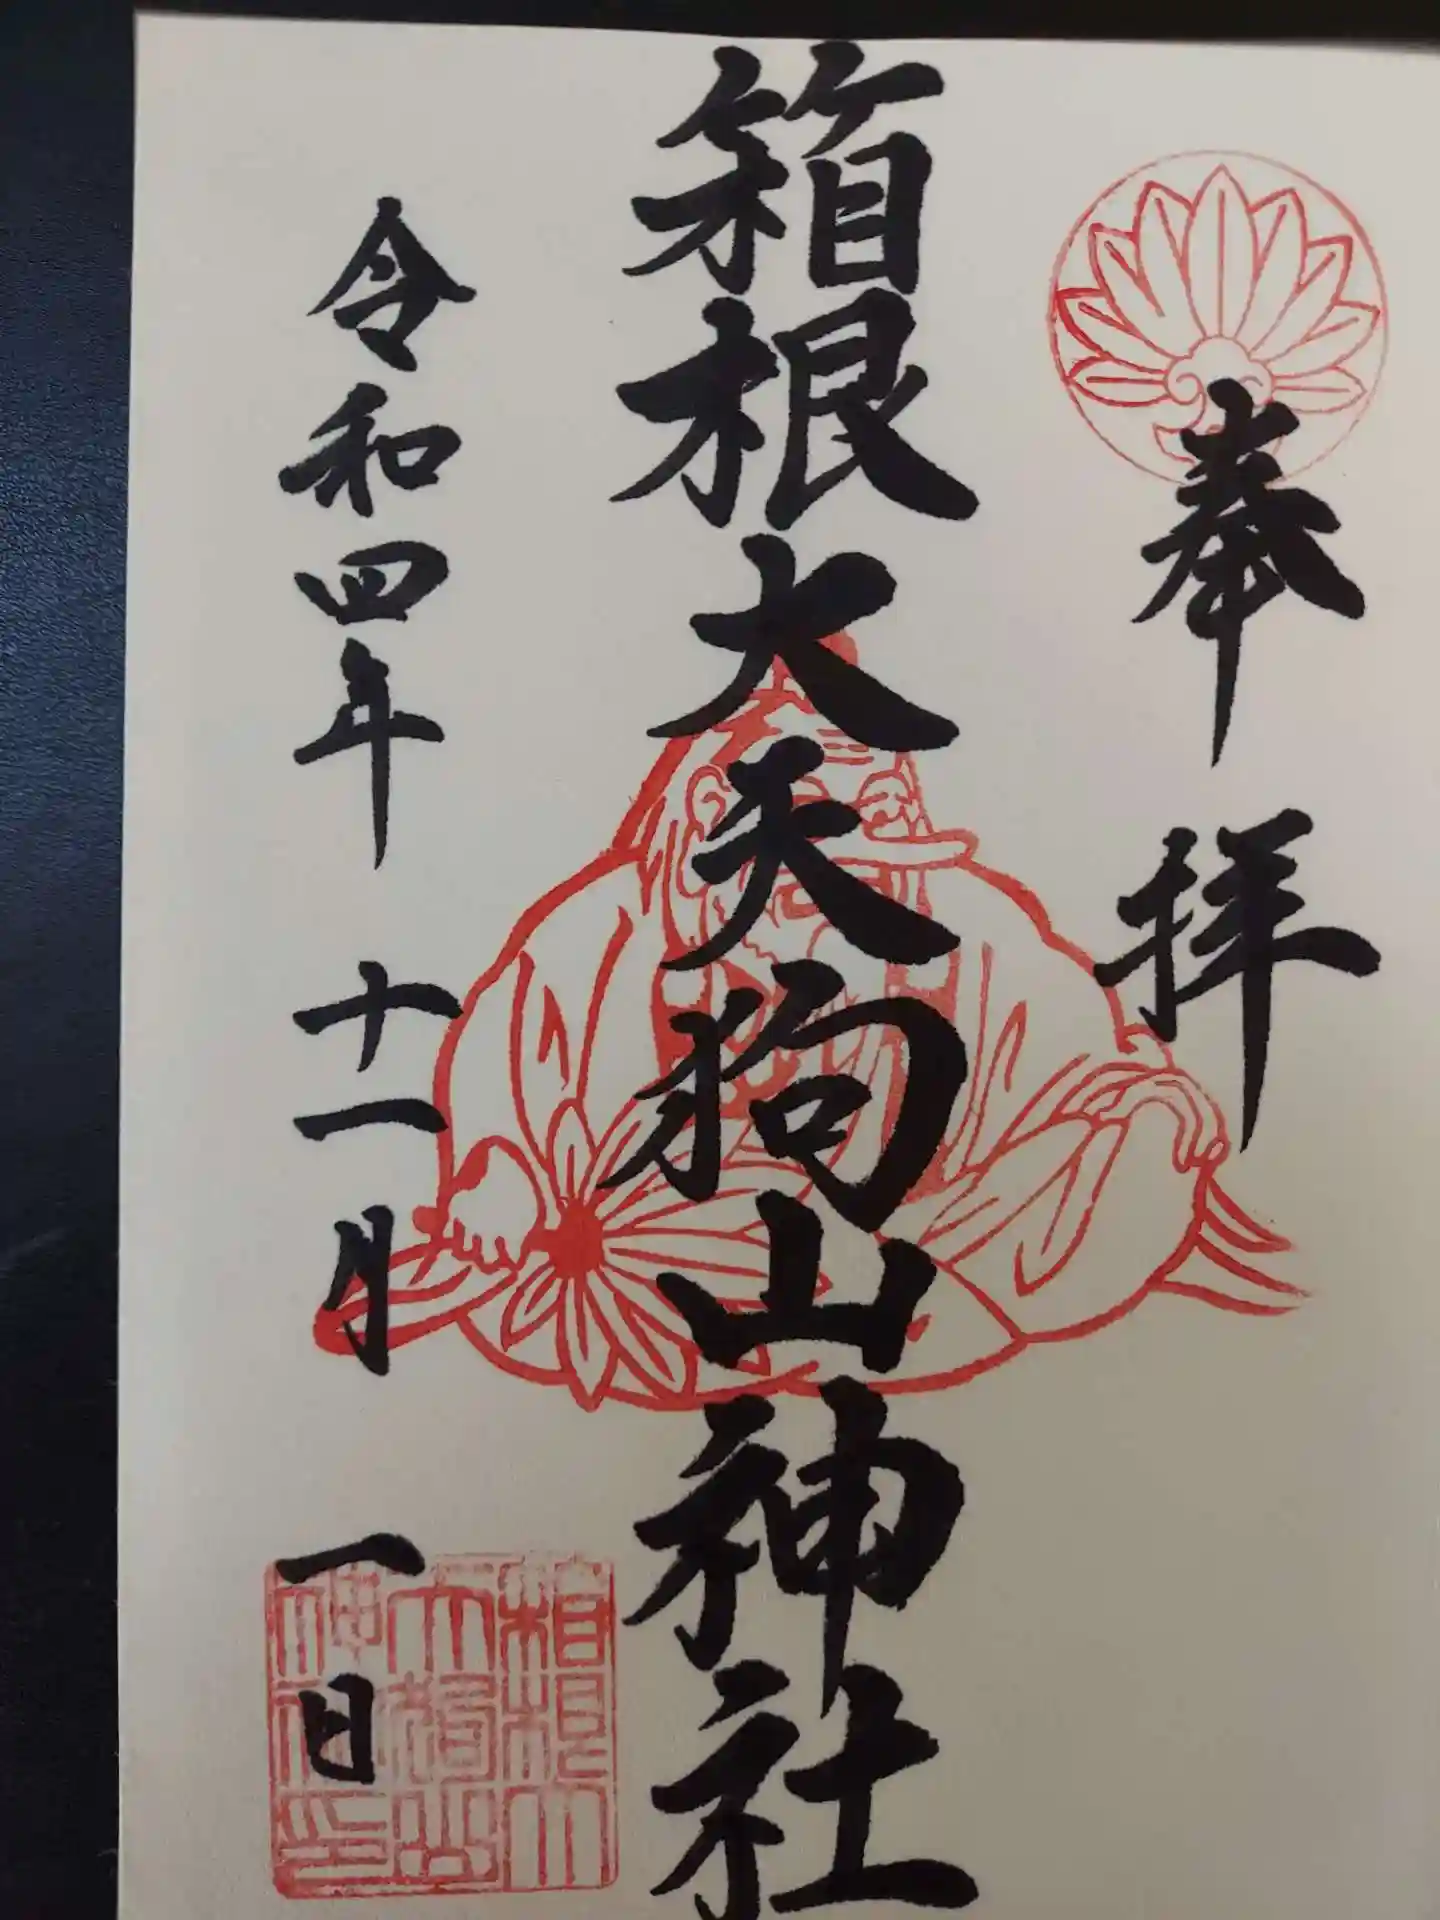 奉拝
箱根大天狗山神社
令和四年十一月一日
箱根大
天狗山
神社印